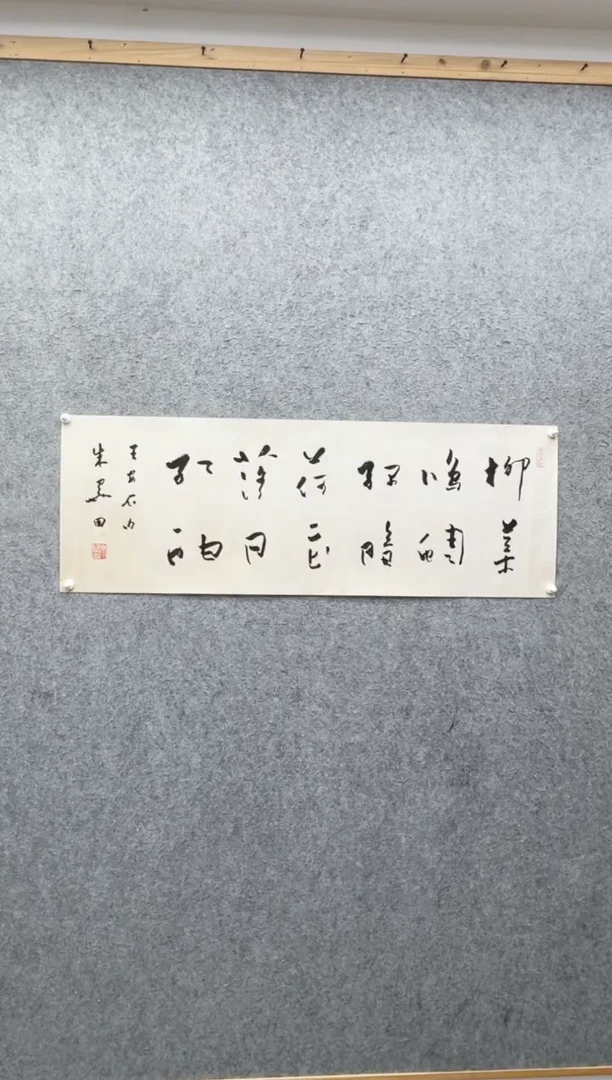 柳葉
鳴蜩
綠暗
荷花
落日
紅酣
王安石句
朱 田